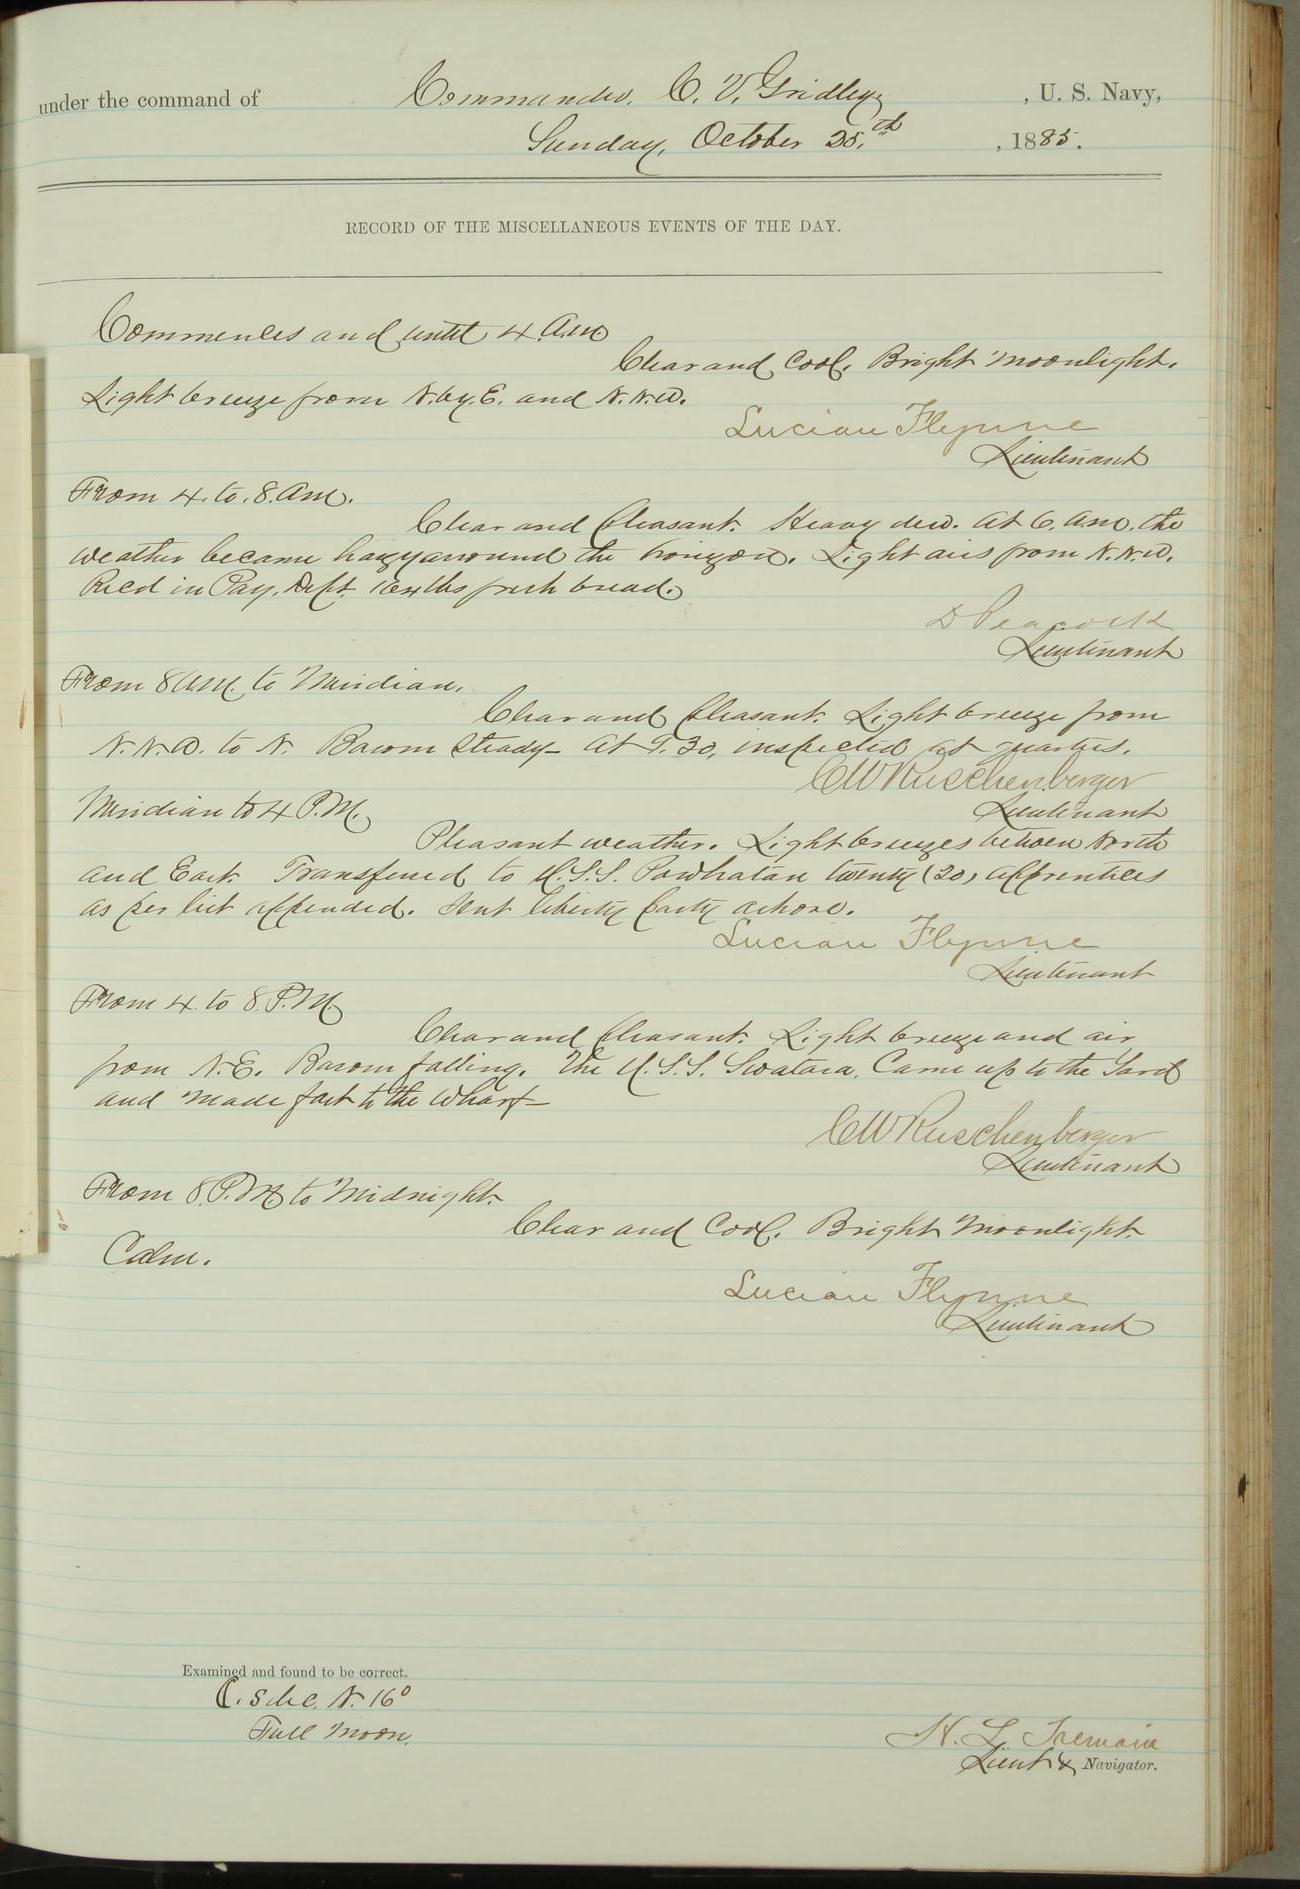 under the command of Commander C. V. Gridley, U. S. Navy,
Sunday, October 25.th, 1885.
RECORD OF THE MISCELLANEOUS EVENTS OF THE DAY.
Commences and until 4 A.M.
Clear and Cool. Bright Moonlight.
Light breeze from N. by. E. and N.N.W.
Lucian Flynne
Lieutenant
From 4. to. 8. Am.
Clear and pleasant. Heavy dew. At 6. am. the
weather became hazy arround the horizon. Light airs from N.N.W.
Rec'd in Pay. Dept. lbs fresh bread.
D Peacock
Lieutenant
From 8 AM. to Meridian.
Clear and pleasant. Light breeze from
N.N.W. to N. Barom steady - At 9.30, inspected at quarters.
C W Ruschenberger
Lieutenant
Meridian to 4 P.M.
Pleasant weather. Light breezes between North
and East. Transferred to U.S.S. Powhatan twenty (20) apprentices
as per list appended. Sent liberty party ashore.
Lucian Flynne
Lieutenant
From 4 to 8 P.M.
Clear and pleasant. Light breeze and air
from N.E. Barom falling. The U.S.S. Swatara, Came up to the Yard
and made fast to the wharf -
C W Ruschenberger
Lieutenant
From 8. P.M. to Midnight.
Clear and Cool. Bright Moonlight.
Calm.
Lucian Flynne
Lieutenant
Examined and found to be correct.
☾. s dec. N. 16°
Full Moon.
H. L. Tremain
Lieut & Navigator.